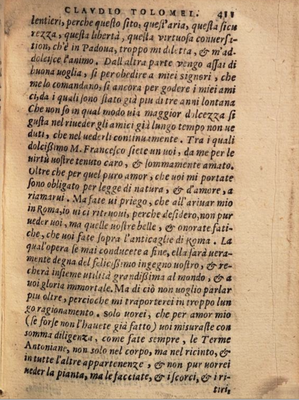 CLAVDIO TOLOMEI. 431
lentieri, perche questo sito, quest'aria, questa sicu
rezza, questa libertà, questa virtuosa conuersa-
tion, ch'è in Padoua, troppo mi diletta, & m'ad-
dolcisce l'animo. Dall'altra parte vengo assai di
buona uoglia, si per obedire a miei signori, che
me lo comandano, si ancora per godere i miei ami
ci, da i quali sono stato già piu di tre anni lontano
Che non so in qual modo ui è maggior dolcezza si
gusta nel riueder gli amici già lungo tempo non ue
duti, che nel uederli continuamente. Tra i quali
dolcissimo M. Francesco siete un uoi, da me per le
uirtù uostre tenuto caro, & sommamente amato.
Oltre che per quel puro amor, che uoi mi portate
sono obligato per legge di natura, & d'amore, a
riamarui. Ma fate ui priego, che all'ariuar mio
in Roma, io ui ci ritruoui, perche desidero, non pur
ueder uoi, ma quelle uostre belle, & onorate fati-
che, che uoi fate sopra l'anticaglie di Roma. La
qual opera se mai conducete a fine, ella sarà uera-
mente degna del felicissimo ingegno uostro, & re-
cherà insieme utilità grandissima al mondo, & a
uoi gloria immortale. Ma di ciò non uoglio parlar
piu oltre, percioche mi traporterei in troppo lun
go ragionamento. solo uorei, che per amor mio
(se forse non l'hauete già fatto) uoi misuraste con
somma diligenza, come fate sempre, le Terme
Antoniane, non solo nel corpo, ma nel ricinto, &
in tutte l'altre appartenenze, & non pur uorrei
ueder la pianta, ma le facciate, & i scorci, & i ri-
tiri,